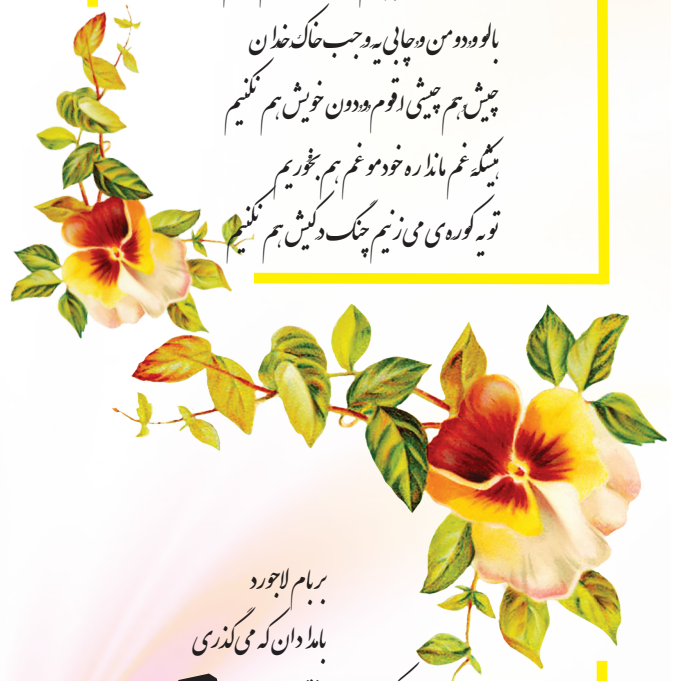 بالو و دو من و چابی یه وجب خاک خدا ن
چیش هم چیشی اقوم و دون خویش هم نکنیم
هیشکۀ غم ماندا ره خودمو غم هم بخوریم
تو یه کوره‌ی می زنیم چنگ د کیش هم نکنیم
بر بام لاجورد
بامدادان که می‌گذری